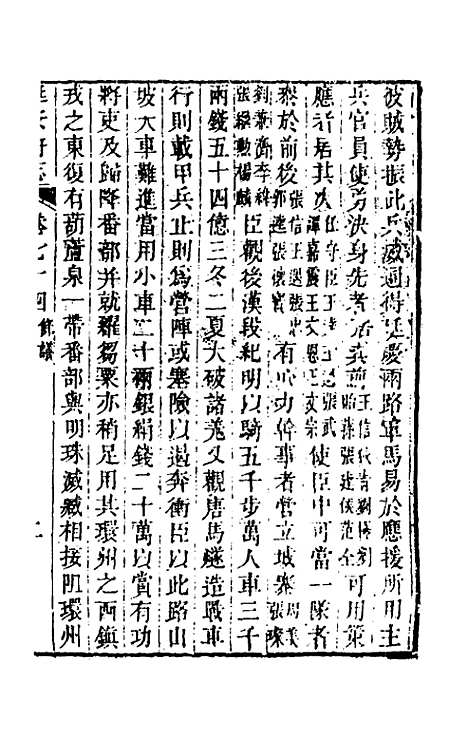 彼賊勢振此兵威逼得延慶兩路軍馬易於應援所用主
兵官員使勇決身先者居其前王信狄青劉拯劉貽孫張建侯范全可用策
應者居其次任守信王達王遇張武譚嘉震王文恩王文宗使臣中可當一隊者
張於前後張信王遇張忠郭逵張懷寶有心力幹事者營立城寨周美張璨
劉兼濟李緯張繼勳楊麟臣觀後漢段紀明以騎五千步萬人車三千
兩錢五十四億三冬二夏大破諸羌又觀唐馬燧造戰車
行則載甲兵止則爲營陣或塞險以遏奔衝臣以此路山
坡大車難進當用小車二十兩銀絹錢二十萬以賞有功
將吏及歸降番部并就糴芻粟亦稍足用其環州之西鎮
戎之東復有葫蘆泉一帶番部與明珠滅臧相接阻環州
卷七十四 餘議